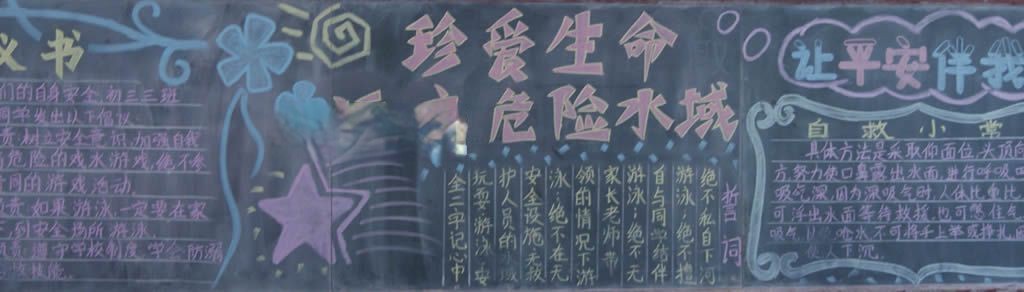 议书
们的自身安全,初三三班
同学发出以下倡议
责,树立安全意识,加强自我
危险的戏水游戏,绝不参
不同的游戏活动.
责,如果游泳,一定要在家
到安全场所游泳.
遵守学校制度,学会防溺
珍爱生命
危险水域
誓同
绝不私自下河
游泳;绝不擅
自与同学结伴
游泳;绝不无
家长老师带
领的情况下游
泳;绝不在无
安全设施,无救
护人员的
玩耍,游泳,安
全二字记心中
让平安伴我
自救小常
具体方法是采取仰面位,头顶向
方,努力使口鼻露出水面,进行呼吸,
吸气深,因为深吸气时,人体比重比
可浮出水面等待救援,也可憋住气
呛水,不可将手上举或挣扎,
下沉.